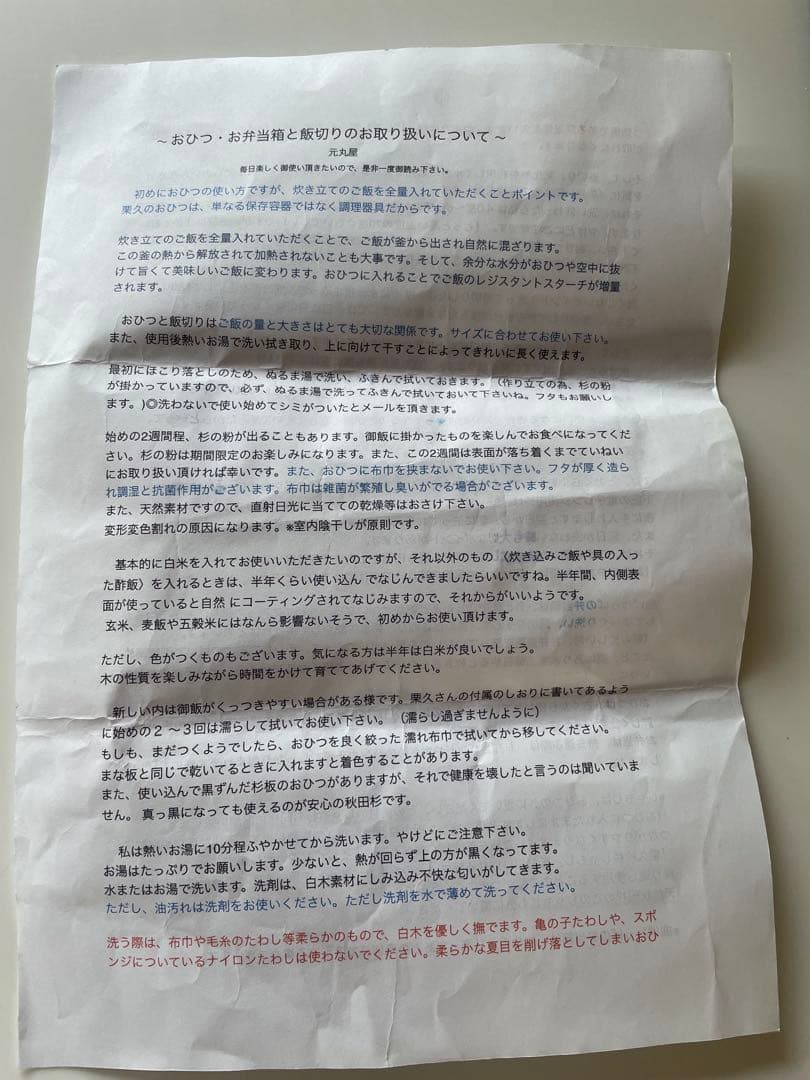 ~ おひつ・お弁当箱と飯切りのお取り扱いについて ~
元丸屋
毎日楽しく御使い頂きたいので、是非一度御読み下さい。
初めにおひつの使い方ですが、炊き立てのご飯を全量入れていただくことポイントです。
栗久のおひつは、単なる保存容器ではなく調理器具だからです。
炊き立てのご飯を全量入れていただくことで、ご飯が釜から出され自然に混ざります。
この釜の熱から解放されて加熱されないことも大事です。そして、余分な水分がおひつや空中に抜
けて旨くて美味しいご飯に変わります。おひつに入れることでご飯のレジスタントスターチが増量
されます。
おひつと飯切りはご飯の量と大きさはとても大切な関係です。サイズに合わせてお使い下さい。
また、使用後熱いお湯で洗い拭き取り、上に向けて干すことによってきれいに長く使えます。
最初にほこり落としのため、ぬるま湯で洗い、ふきんで拭いておきます。（作り立ての為、杉の粉
が掛かっていますので、必ず、ぬるま湯で洗ってふきんで拭いておいて下さいね。フタもお願いし
ます。)◎洗わないで使い始めてシミがついたとメールを頂きます。
始めの2週間程、杉の粉が出ることもあります。御飯に掛かったものを楽しんでお食べになってくだ
さい。杉の粉は期間限定のお楽しみになります。また、この2週間は表面が落ち着くまでていねい
にお取り扱い頂ければ幸いです。また、おひつに布巾を挟まないでお使い下さい。フタが厚く造ら
れ調湿と抗菌作用がございます。布巾は雑菌が繁殖し臭いがでる場合がございます。
また、天然素材ですので、直射日光に当てての乾燥等はおさけ下さい。
変形変色割れの原因になります。※室内陰干しが原則です。
基本的に白米を入れてお使いいただきたいのですが、それ以外のもの（炊き込みご飯や具の入っ
た酢飯）を入れるときは、半年くらい使い込ん でなじんできましたらいいですね。半年間、内側表
面が使っていると自然 にコーティングされてなじみますので、それからがいいようです。
玄米、麦飯や五穀米にはなんら影響ないそうで、初めからお使い頂けます。
ただし、色がつくものもございます。気になる方は半年は白米が良いでしょう。
木の性質を楽しみながら時間をかけて育ててあげてください。
新しい内は御飯がくっつきやすい場合がある様です。栗久さんの付属のしおりに書いてあるよう
に始めの２ ～３回は濡らして拭いてお使い下さい。 （濡らし過ぎませんように）
もしも、まだつくようでしたら、おひつを良く絞った 濡れ布巾で拭いてから移してください。
まな板と同じで乾いてるときに入れますと着色することがあります。
また、使い込んで黒ずんだ杉板のおひつがありますが、それで健康を壊したと言うのは聞いていま
せん。 真っ黒になっても使えるのが安心の秋田杉です。
私は熱いお湯に10分程ふやかせてから洗います。やけどにご注意下さい。
お湯はたっぷりでお願いします。少ないと、熱が回らず上の方が黒くなってます。
水またはお湯で洗います。洗剤は、白木素材にしみ込み不快な匂いがしてきます。
ただし、油汚れは洗剤をお使いください。ただし洗剤を水で薄めて洗ってください。
洗う際は、布巾や毛糸のたわし等柔らかのもので、白木を優しく撫でます。亀の子たわしや、スポ
ンジについているナイロンたわしは使わないでください。柔らかな夏目を削げ落としてしまいおひ